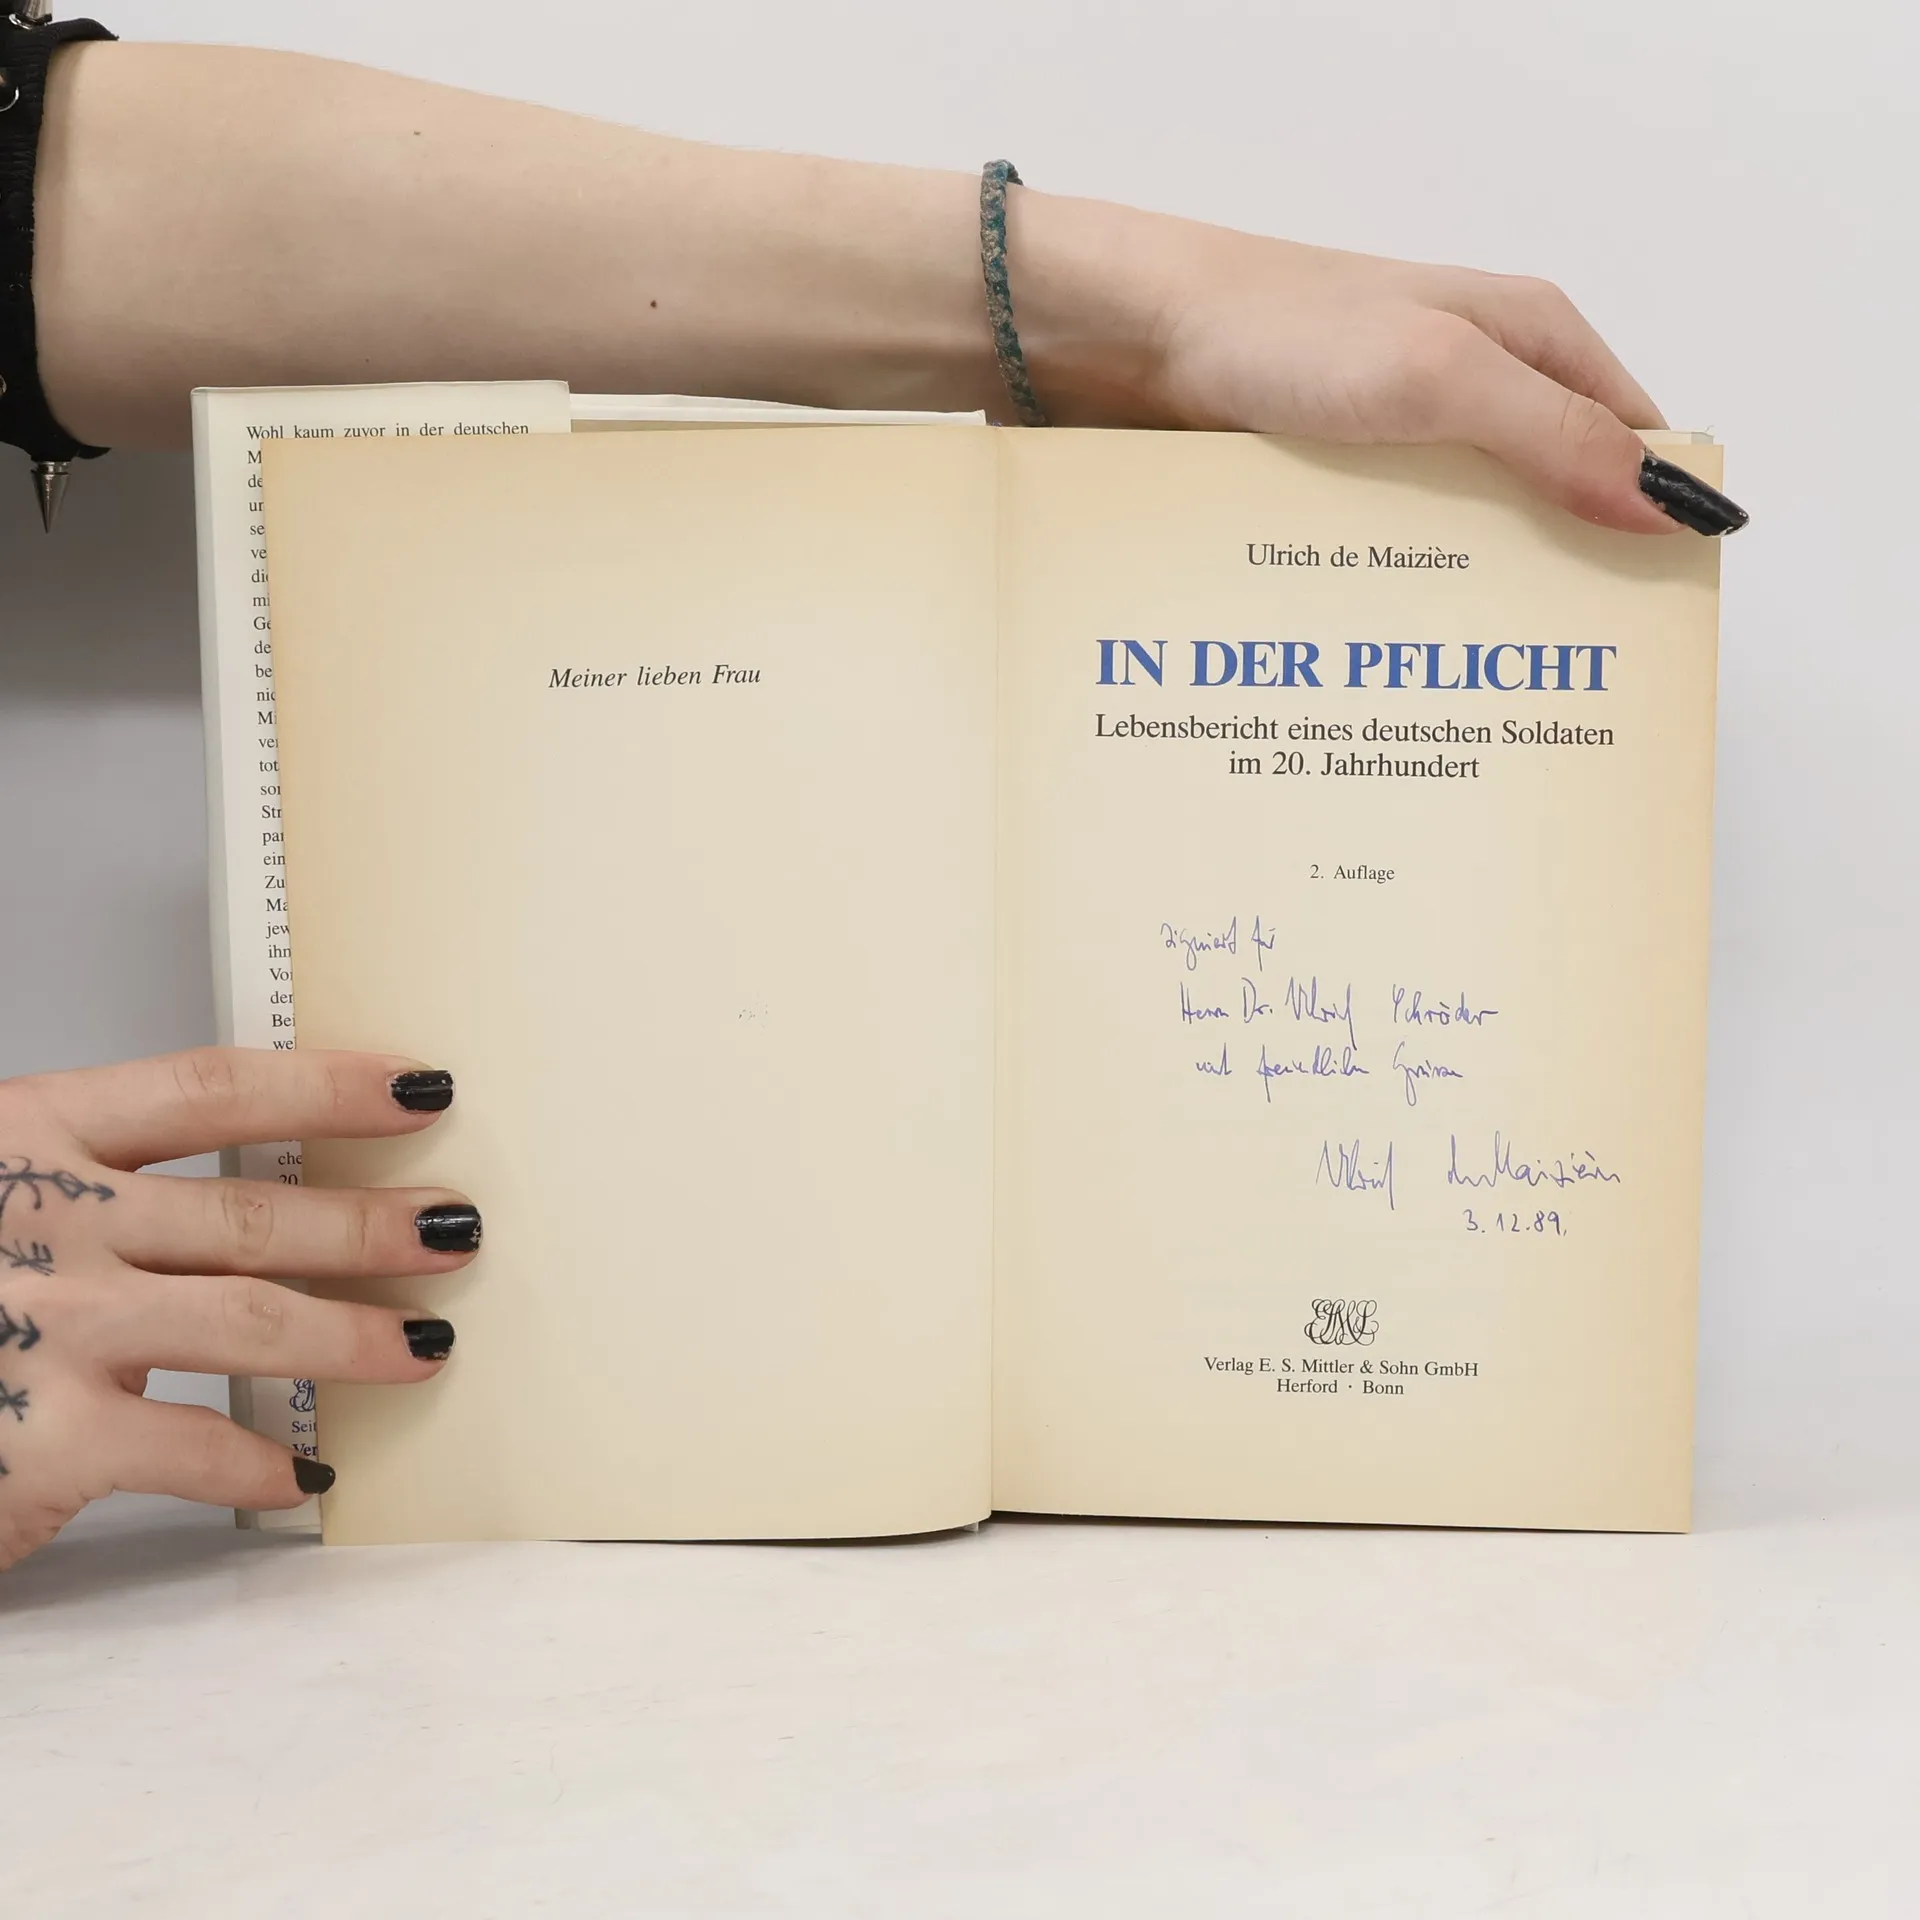 Wohl kaum zuvor in der deutschen
M
de
ur
se
ve
die
mi
Ge
de
be
nic
Mi
ver
tot
sor
Str
par
ein
Zu
Ma
jew
ihn
Vor
der
Bei
wel
che
20
Seit
Ver
Meiner lieben Frau
Ulrich de Maizière
IN DER PFLICHT
Lebensbericht eines deutschen Soldaten
im 20. Jahrhundert
2. Auflage
signiert für
Herrn Dr. Ulrich Schröder
mit freundlichen Grüssen
Ulrich de Maizière
3.12.89.
Verlag E. S. Mittler & Sohn GmbH
Herford · Bonn